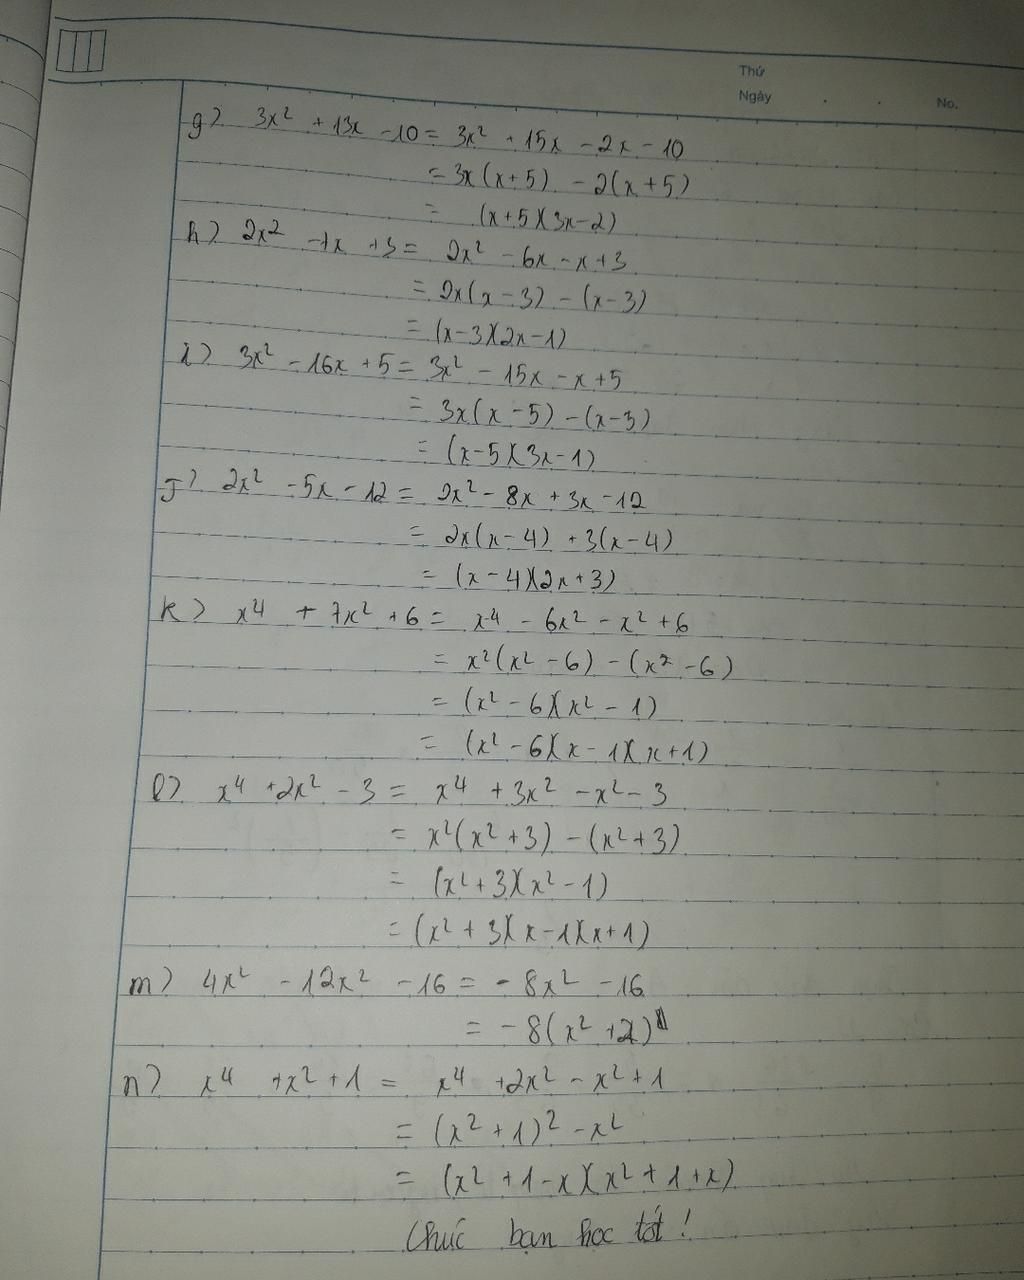 Thứ
Ngày . . No.
g) 3x² + 13x - 10 = 3x² + 15x - 2x - 10
= 3x(x+5) - 2(x+5)
= (x+5)(3x-2)
h) 2x² - 7x + 3 = 2x² - 6x - x + 3
= 2x(x-3) - (x-3)
= (x-3)(2x-1)
i) 3x² - 16x + 5 = 3x² - 15x - x + 5
= 3x(x-5) - (x-3)
= (x-5)(3x-1)
j) 2x² - 5x - 12 = 2x² - 8x + 3x - 12
= 2x(x-4) + 3(x-4)
= (x-4)(2x+3)
k) x⁴ + 7x² + 6 = x⁴ - 6x² - x² + 6
= x²(x² - 6) - (x² - 6)
= (x² - 6)(x² - 1)
= (x² - 6)(x - 1)(x + 1)
l) x⁴ + 2x² - 3 = x⁴ + 3x² - x² - 3
= x²(x² + 3) - (x² + 3)
= (x² + 3)(x² - 1)
= (x² + 3)(x - 1)(x + 1)
m) 4x² - 12x² - 16 = - 8x² - 16
= - 8(x² + 2)
n) x⁴ + x² + 1 = x⁴ + 2x² - x² + 1
= (x² + 1)² - x²
= (x² + 1 - x)(x² + 1 + x)
Chúc bạn học tốt !